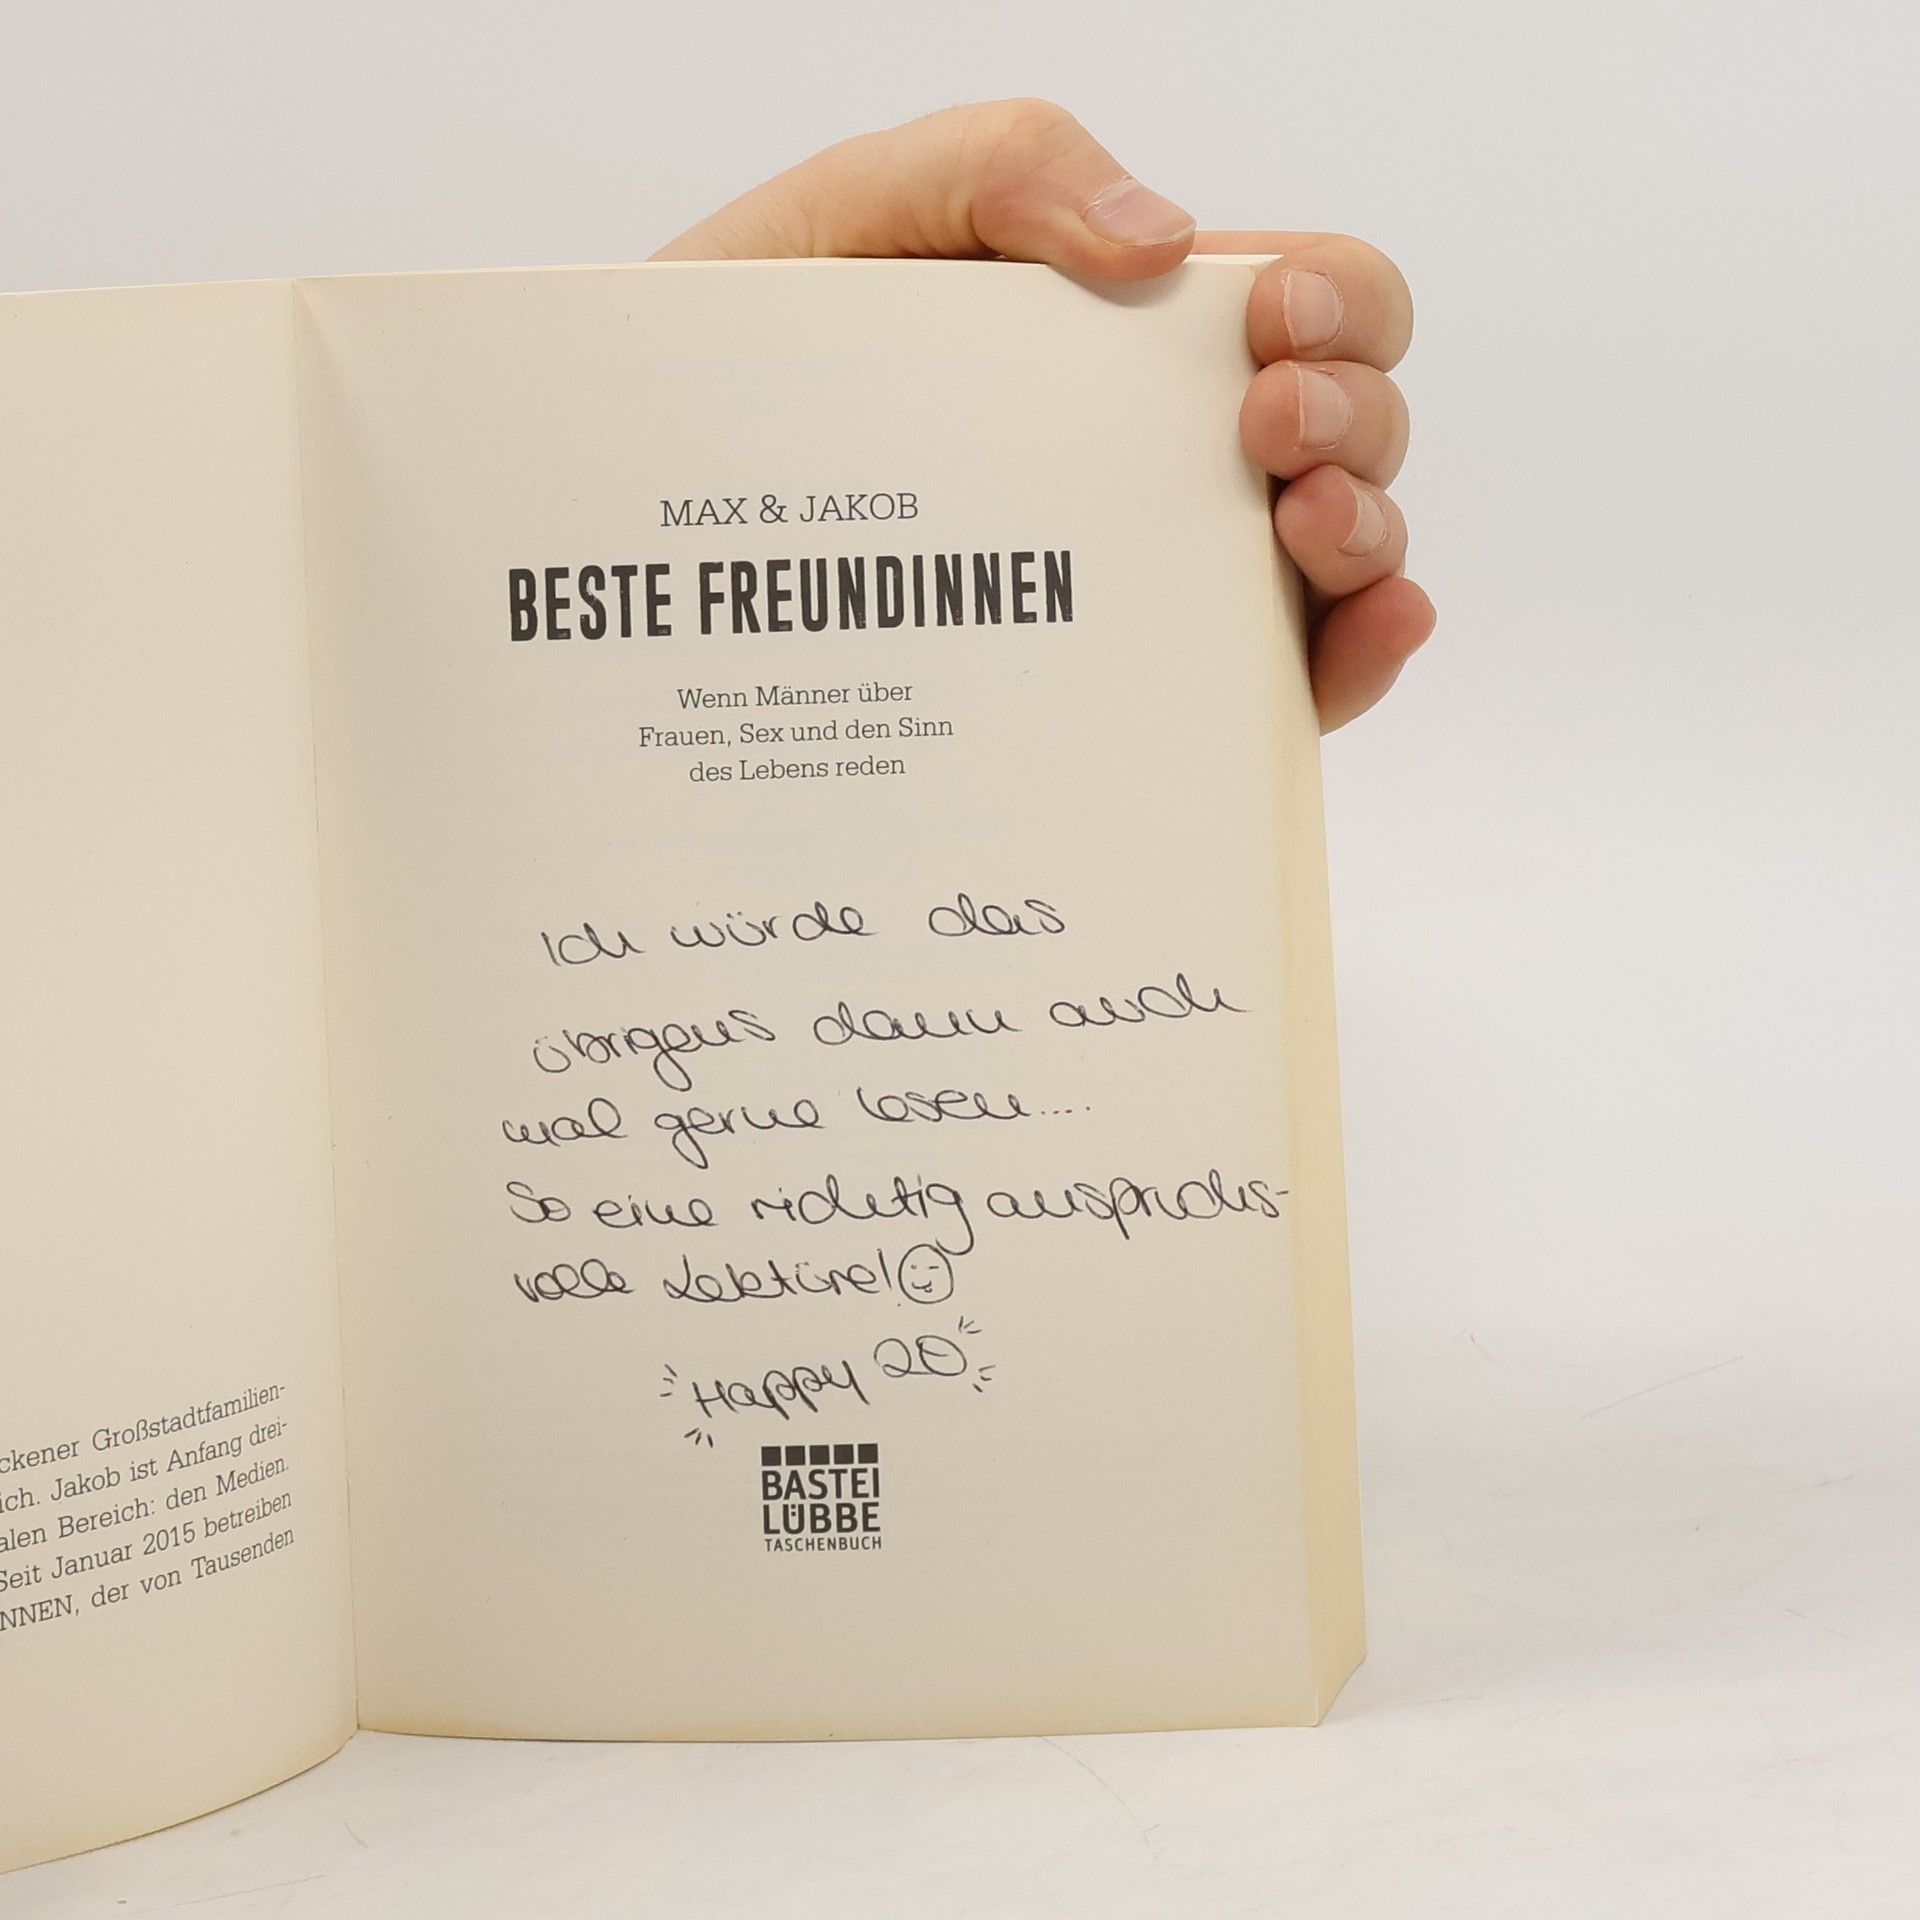 ckener Großstadtfamilien-
ich. Jakob ist Anfang drei-
alen Bereich: den Medien.
Seit Januar 2015 betreiben
NNEN, der von Tausenden
MAX & JAKOB
BESTE FREUNDINNEN
Wenn Männer über
Frauen, Sex und den Sinn
des Lebens reden
Ich würde das
übrigens dann auch
mal gerne lesen....
So eine richtig anspruchs-
volle Lektüre!
Happy 20
BASTEI
LÜBBE
TASCHENBUCH